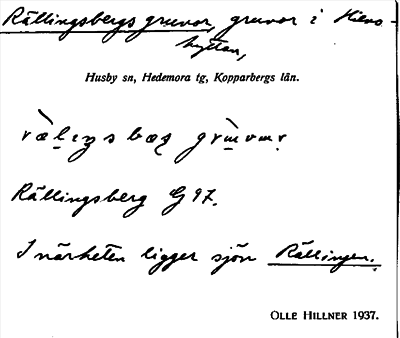 Rällingsbergs gruvor, gruvor i
hyttan,
Husby sn, Hedemora tg, Kopparbergs län.
Rällingsberg G 97.
I närheten ligger sjön Rällingen.
OLLE HILLNER 1937.